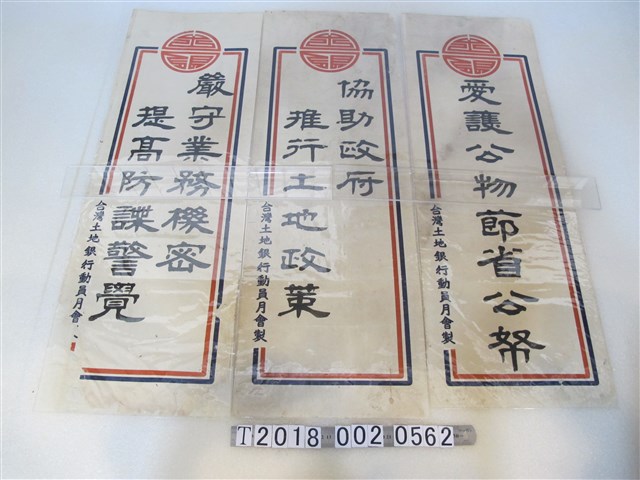 愛護公物節省公帑
台灣土地銀行動員月會製
協助政府
推行土地政策
台灣土地銀行動員月會製
嚴守業務機密
提高防諜警覺
台灣土地銀行動員月會
T 2018 002 0562